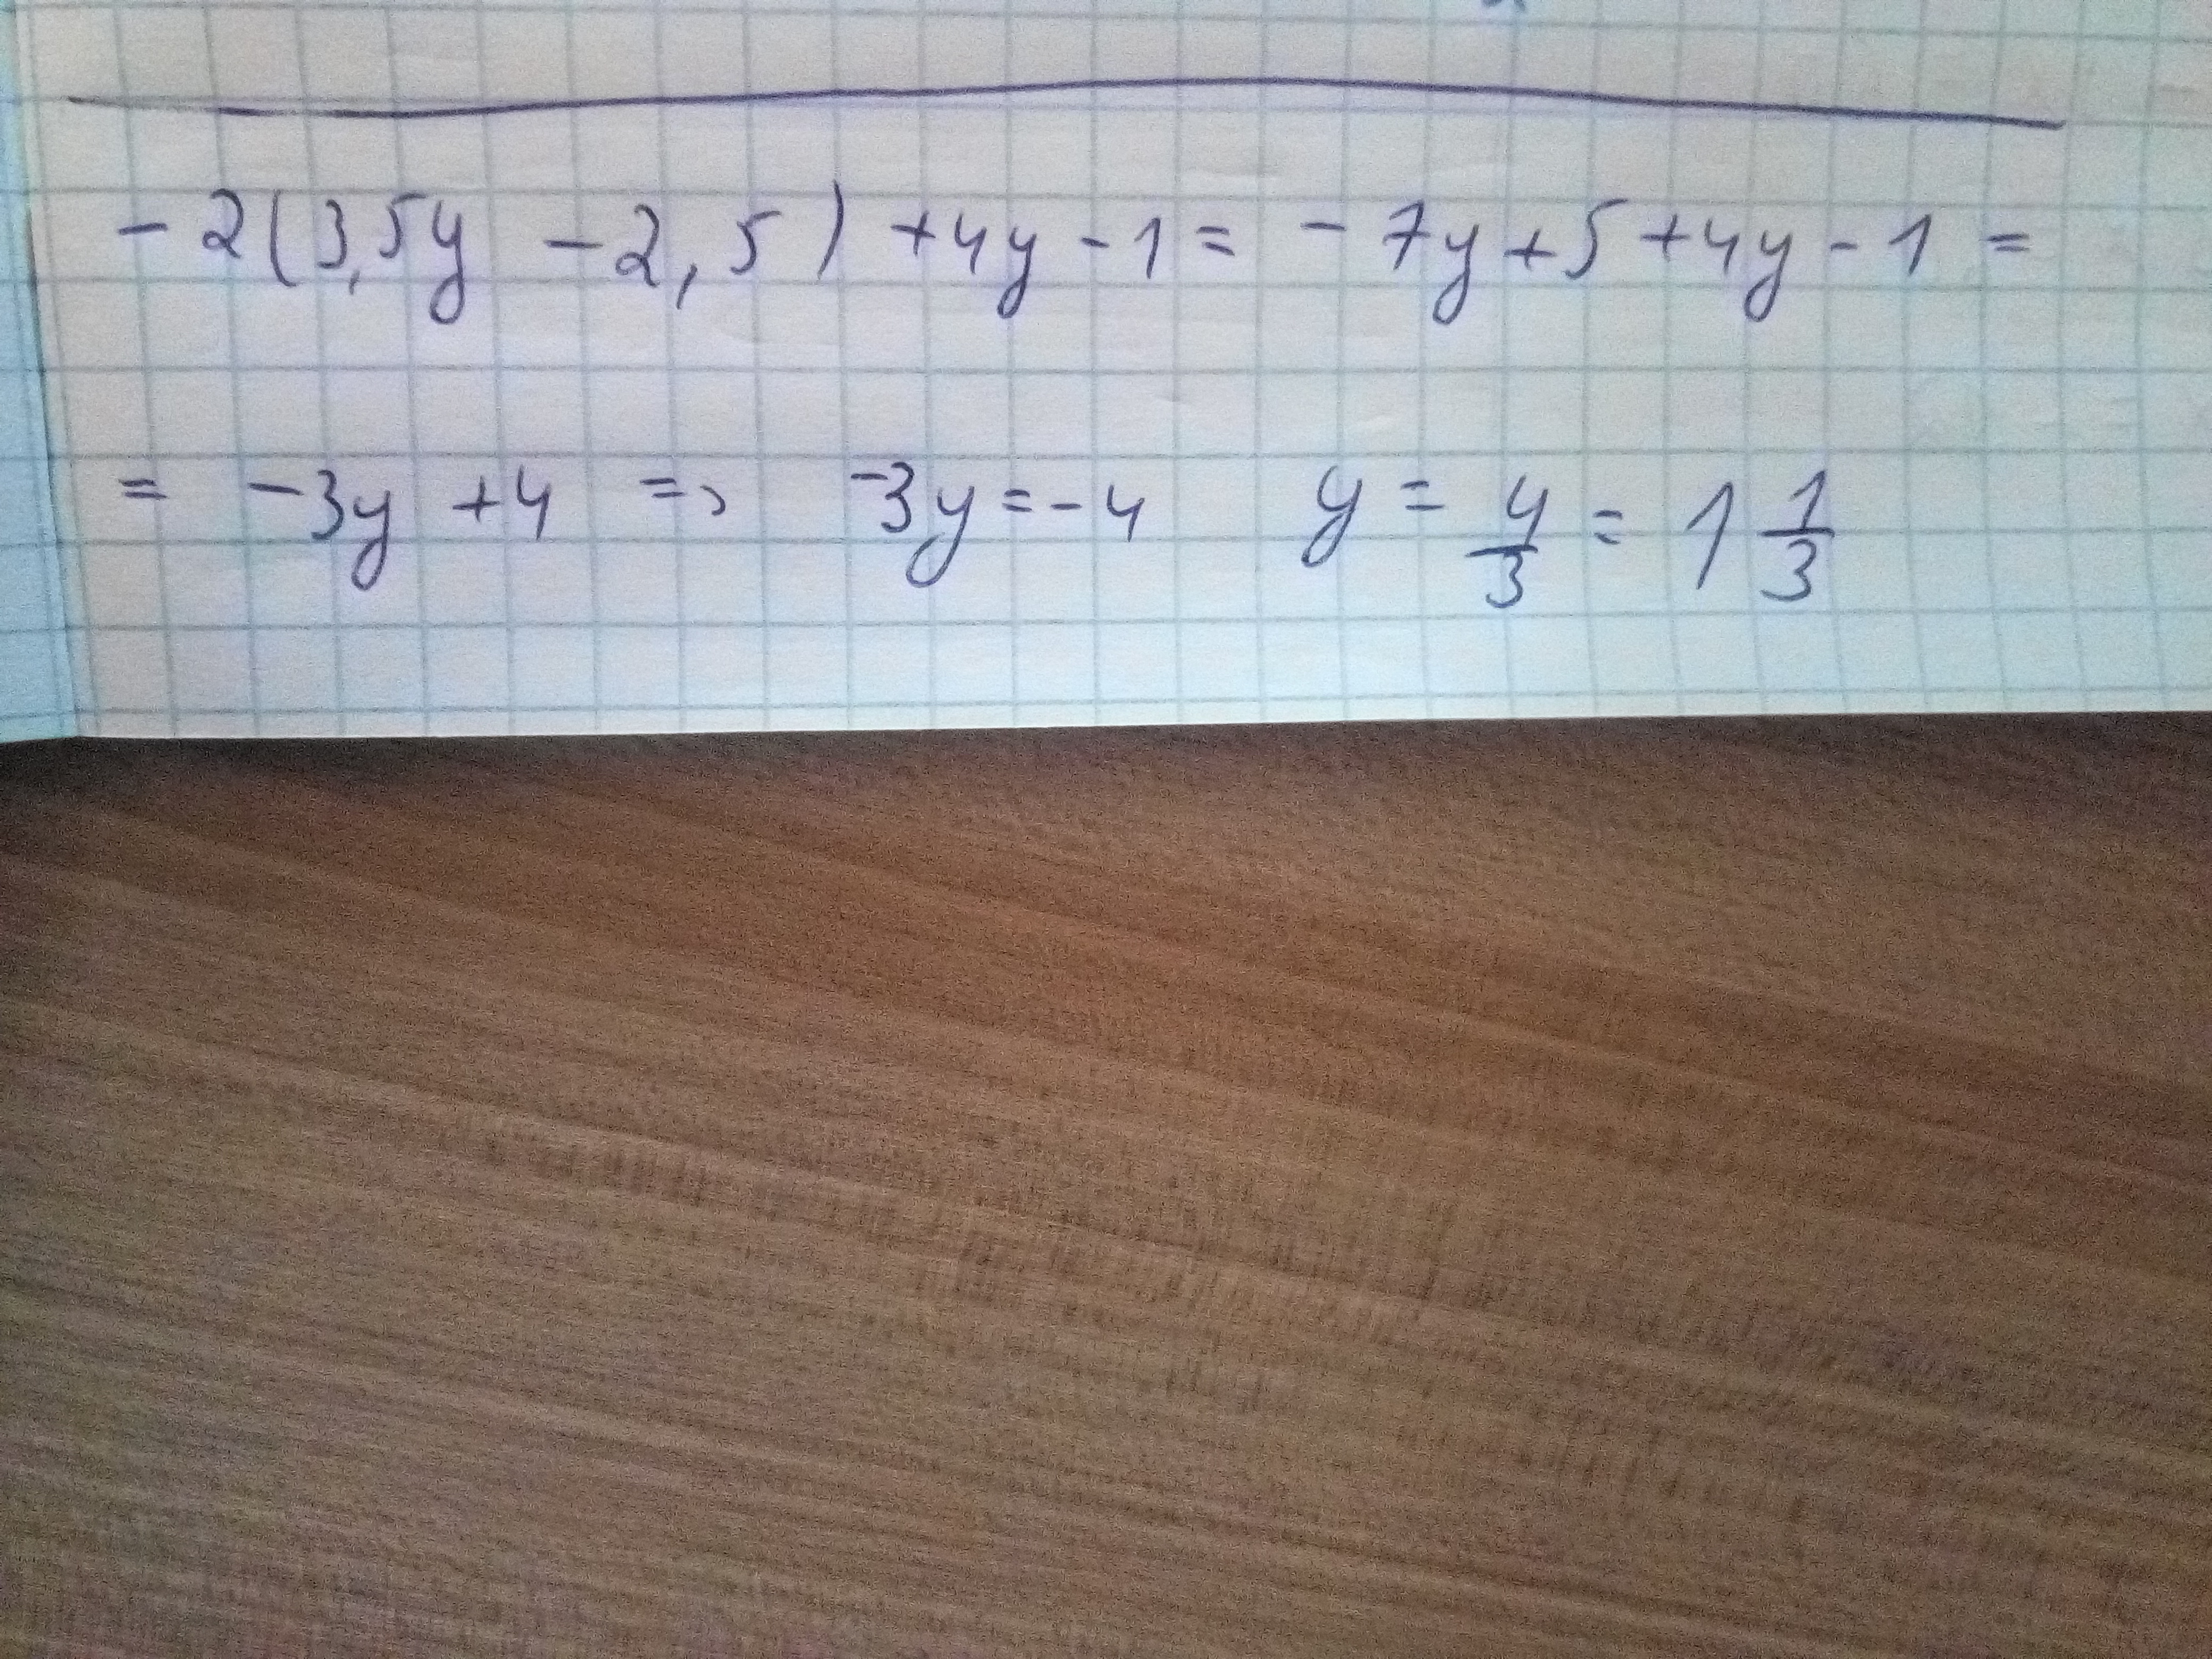 -2(3,5y -2,5) +4y -1 = -7y+5+4y-1 =
= -3y +4 => -3y = -4 y = 4/3 = 1 1/3